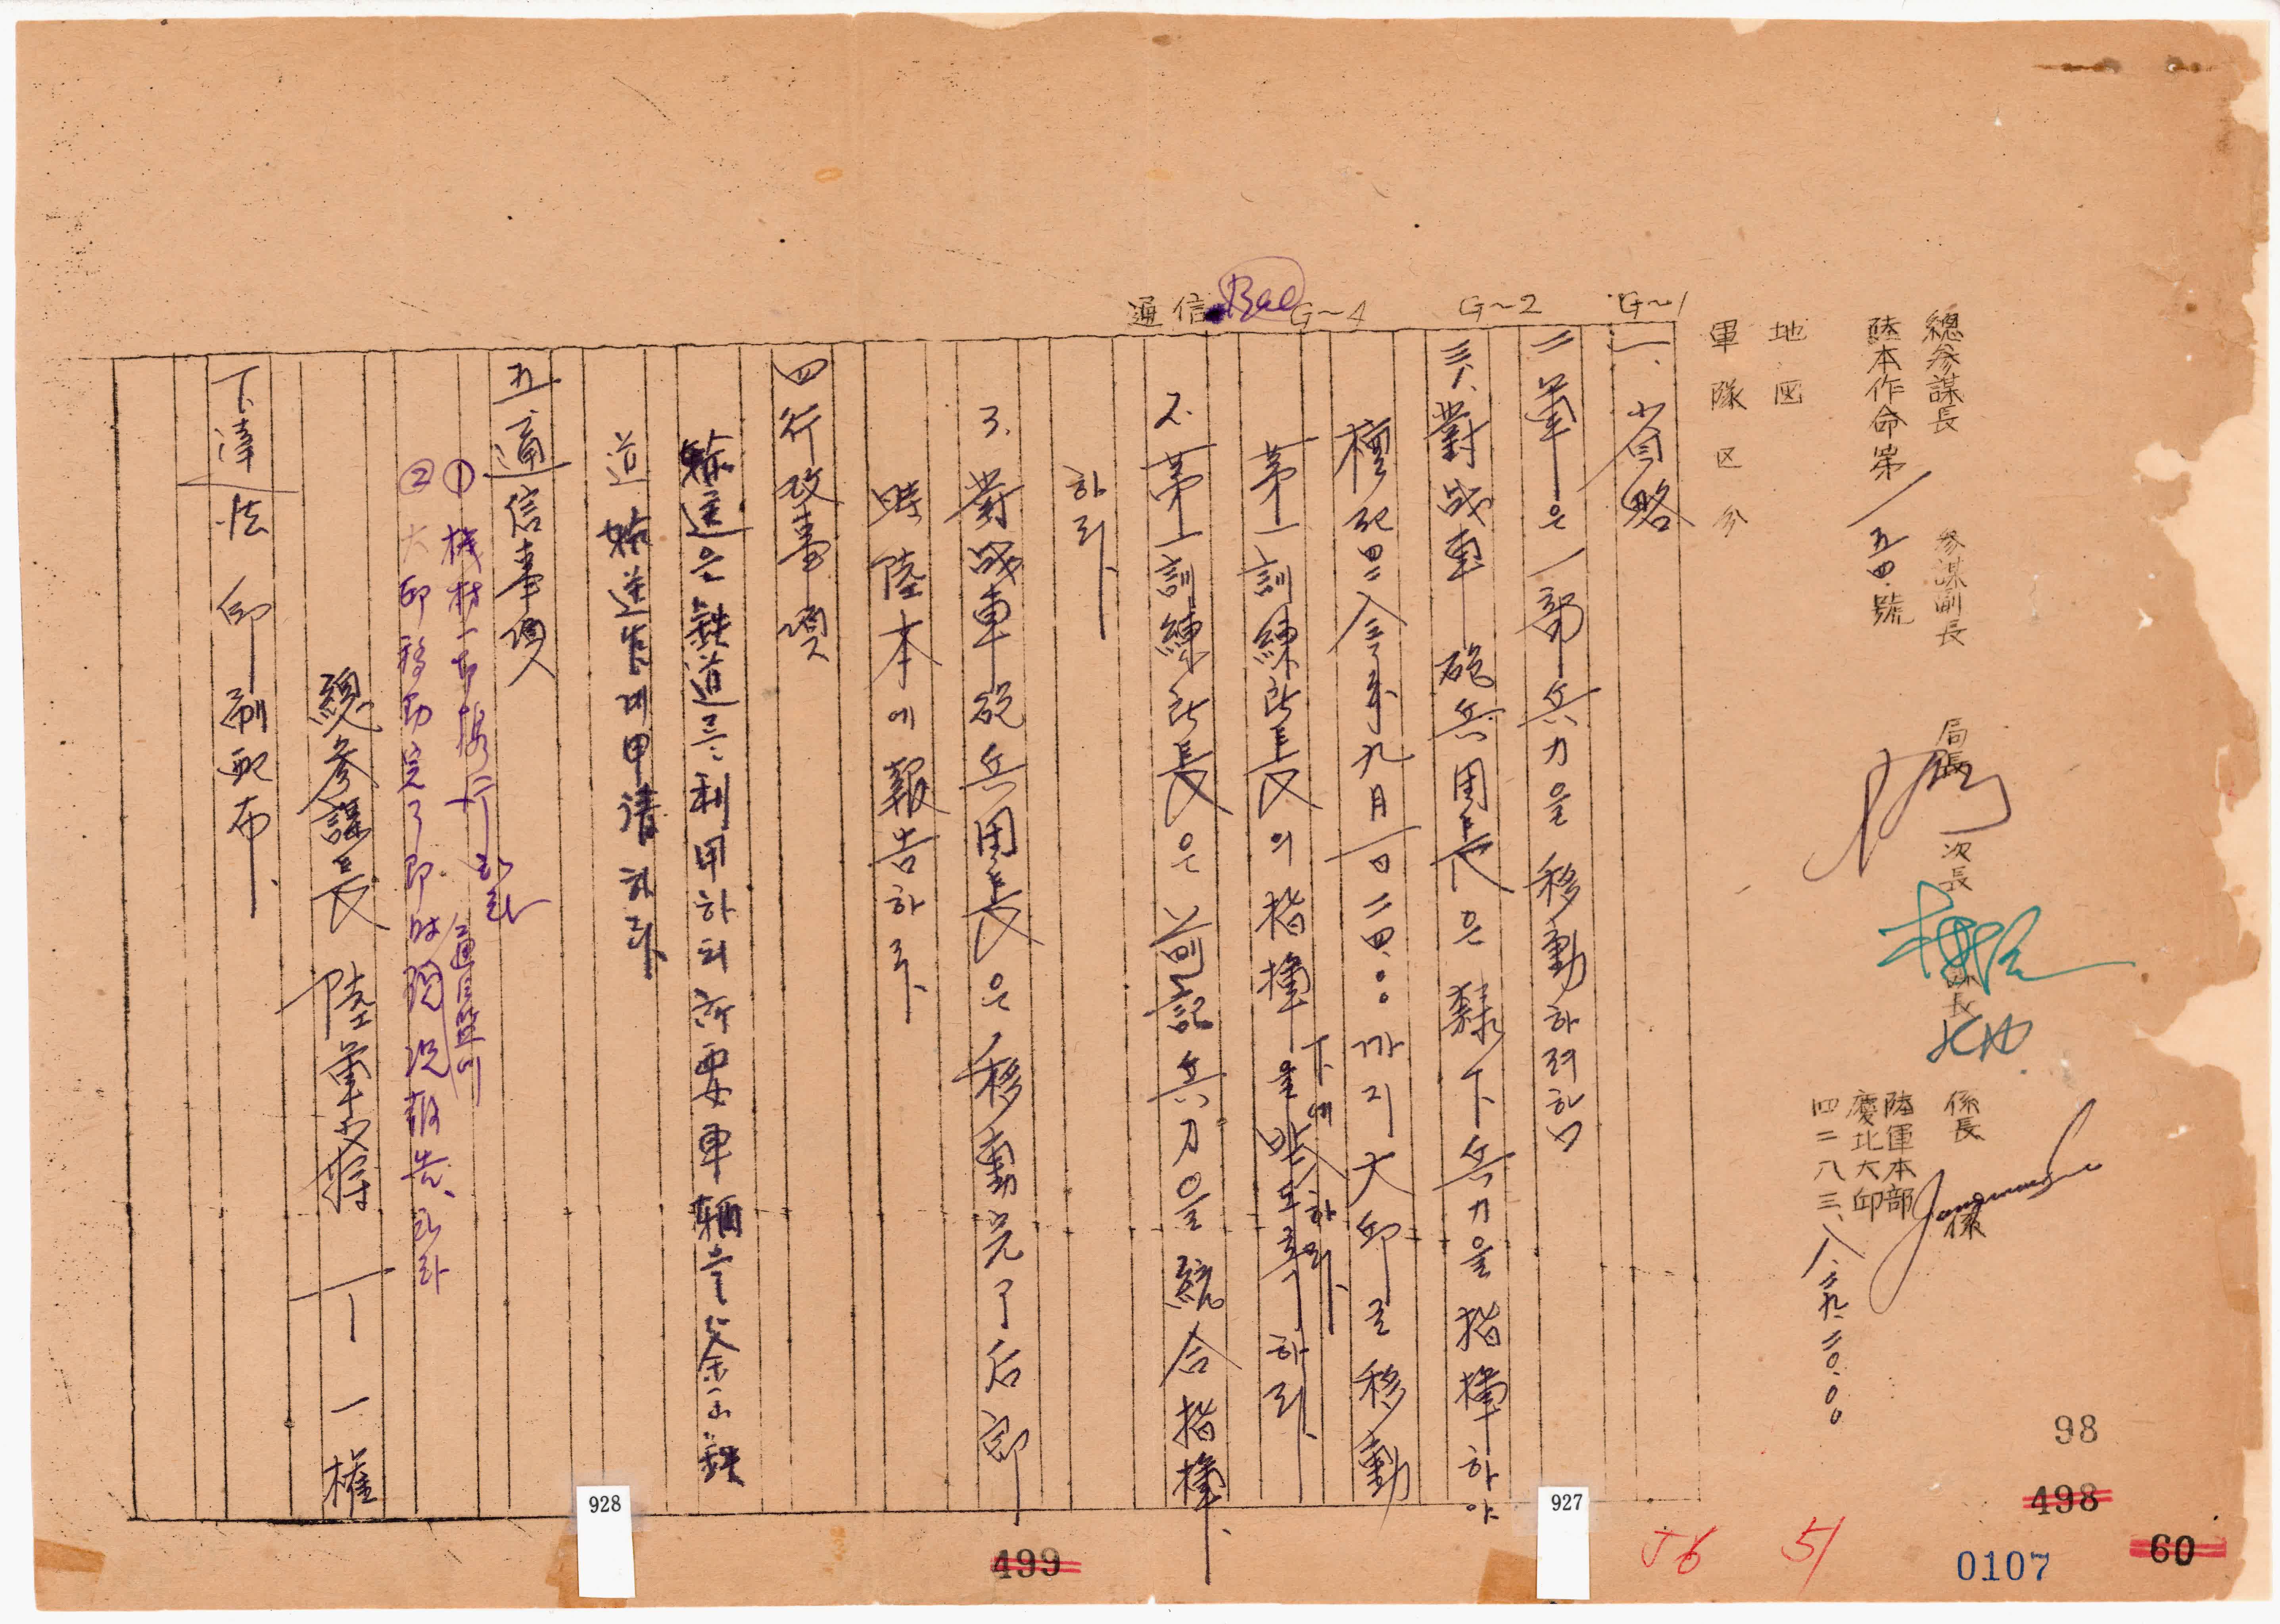 總參謀長 參謀副長 局長 次長 課長 係長 係
陸本作命第一五四號
陸軍本部
慶北大邱
四二八三、八、二九、二〇、〇〇
地図
軍隊区分
G~1
G~2
G~4
Bae
通信
一、省略
二 軍은 一部兵力을 移動하려함
三、1、對戰車砲兵團長은 隷下兵力을 指揮하야
檀紀四二八三年九月一日二四:〇〇까지 大邱로 移動
第一訓練所長의 指揮下에 入하라、
2. 第一訓練所長은 前記兵力을 統合指揮、
하라、
3. 對戰車砲兵團長은 移動完了后 卽
時 陸本에 報告하라、
四 行政事項
輸送은 鐵道를 利用하되 所要車輛은 釜山鐵
道輸送官에 申請하라、
五、通信事項
① 機材一切携行하라
② 大邱移動完了 卽時 通信監에 現況報告、하라
總參謀長 陸軍少將 丁 一 權
下達法 印刷配布、
98
498
499
60
0107
56
51
927
928